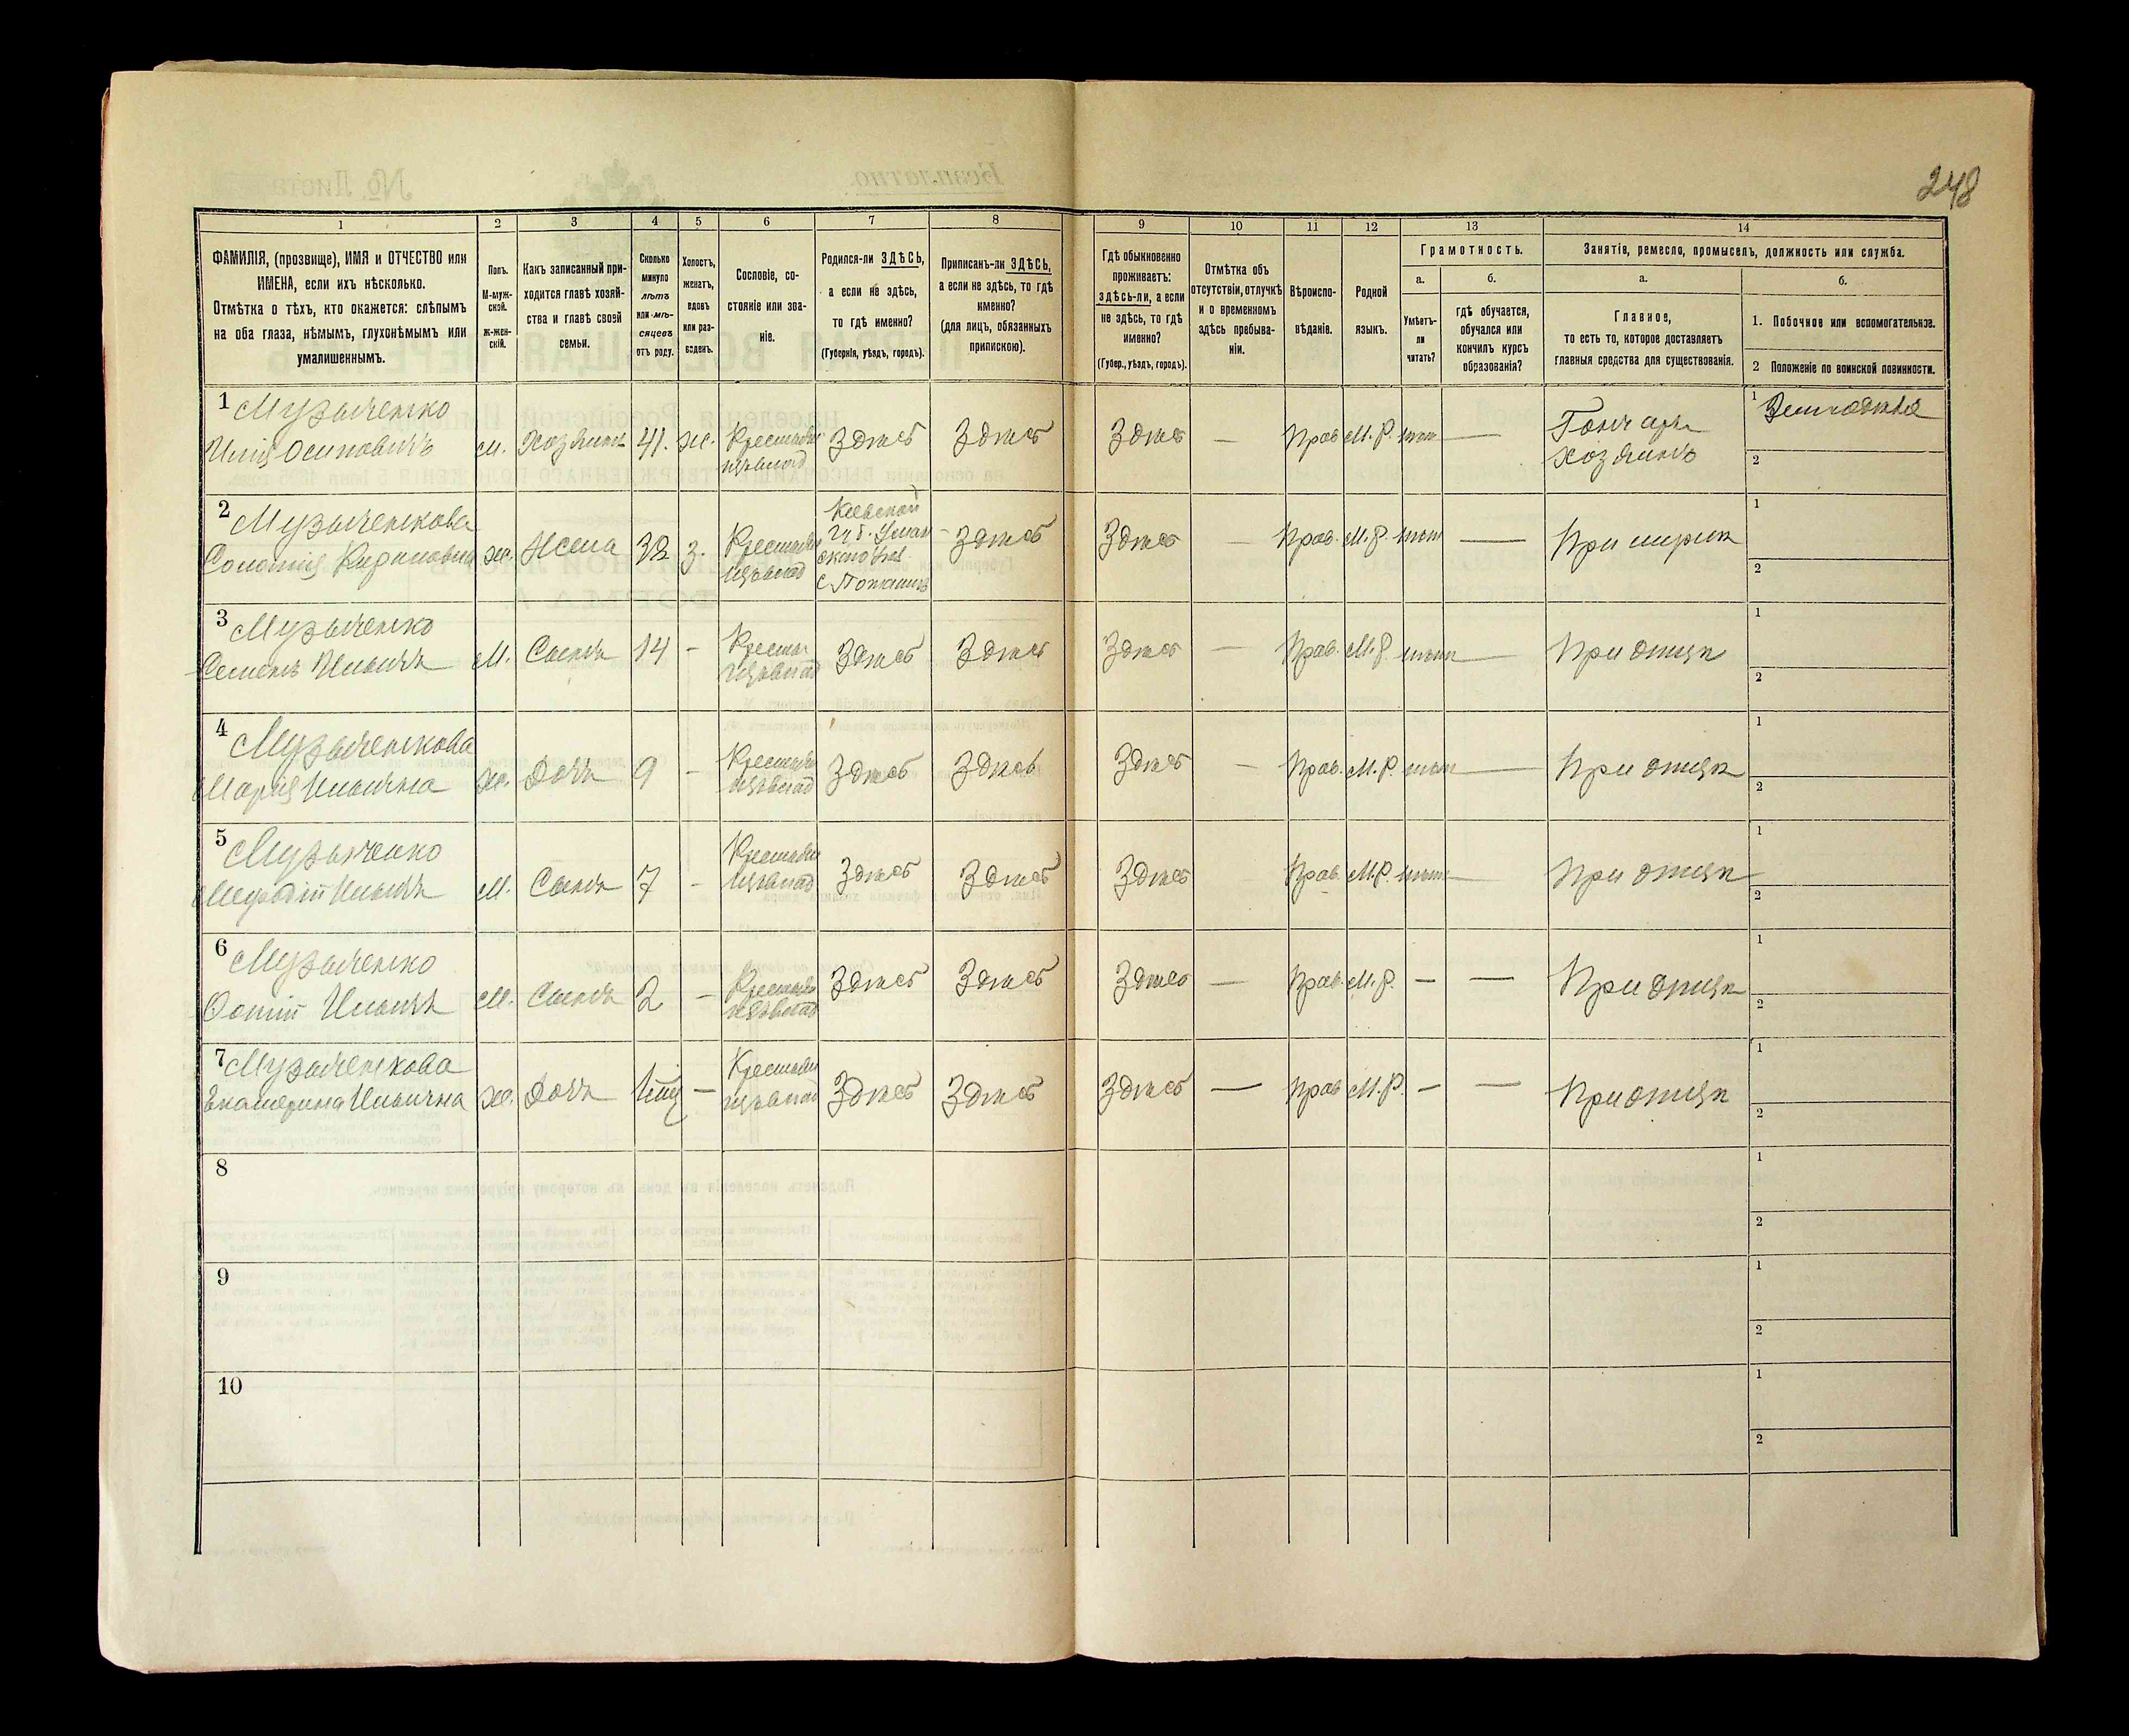 248
1
2
3
4
5
6
7
8
9
10
11
12
13
14
ФАМИЛІЯ, (прозвище), ИМЯ и ОТЧЕСТВО или
ИМЕНА, если ихъ нѣсколько.
Отмѣтка о тѣхъ, кто окажется: слѣпымъ
на оба глаза, нѣмымъ, глухонѣмымъ или
умалишеннымъ.
Полъ.
М-муж-
ской.
ж-жен-
скій.
Какъ записанный при-
ходится главѣ хозяй-
ства и главѣ своей
семьи.
Сколько
минуло
лѣтъ
или мѣ-
сяцевъ
отъ роду.
Холостъ,
женатъ,
вдовъ
или раз-
веденъ.
Сословіе, со-
стояніе или зва-
ніе.
Родился-ли ЗДѢСЬ,
а если не здѣсь,
то гдѣ именно?
(Губернія, уѣздъ, городъ).
Приписанъ-ли ЗДѢСЬ,
а если не здѣсь, то гдѣ
именно?
(для лицъ, обязанныхъ
припискою).
Гдѣ обыкновенно
проживаетъ:
здѣсь-ли, а если
не здѣсь, то гдѣ
именно?
(Губер., уѣздъ, городъ).
Отмѣтка объ
отсутствіи, отлучкѣ
и о временномъ
здѣсь пребыва-
ніи.
Вѣроиспо-
вѣданіе.
Родной
языкъ.
Грамотность.
а.
Умѣетъ-
ли
читать?
б.
гдѣ обучается,
обучался или
кончилъ курсъ
образованія?
Занятіе, ремесло, промыселъ, должность или служба.
а.
Главное,
то есть то, которое доставляетъ
главныя средства для существованія.
б.
1. Побочное или вспомогательное.
2 Положеніе по воинской повинности.
1 Музыченко
Илія Осиповичъ
м. Хозяинъ 41. ж. Крестьян
изъ влад Здѣсь Здѣсь Здѣсь — Прав М.Р. нѣт — Гончаръ
хозяинъ
1 Земледѣліе
2
2 Музыченкова
Соломія Кириловна ж. Жена 38 з. Крестьян
изъ влад
Кіевской
губ. Уман
скаго уѣз
с
Здѣсь Здѣсь — Прав. М.Р. нѣт — При мужѣ
1
2
3 Музыченко
Семенъ Ильичъ м. Сынъ 14 - Крестья
изъ влад Здѣсь Здѣсь Здѣсь — Прав. М.Р. нѣт — При отцѣ
1
2
4 Музыченкова
Марія Ильична ж. Дочь 9 - Крестьян
изъ влад Здѣсь Здѣсь Здѣсь — Прав. М.Р. нѣт — При отцѣ
1
2
5 Музыченко
Мефодій Ильичъ м. Сынъ 7 - Крестьян
изъ влад Здѣсь Здѣсь Здѣсь Прав. М.Р. нѣт — При отцѣ
1
2
6 Музыченко
Ильичъ м. Сынъ 2 — Крестьян
изъ влад Здѣсь Здѣсь Здѣсь — Прав. М.Р. — — При отцѣ
1
2
7 Музыченкова
Екатерина Ильична ж. Дочь — Крестьян
изъ влад Здѣсь Здѣсь Здѣсь — Прав М.Р. — — При отцѣ
1
2
8
1
2
9
1
2
10
1
2